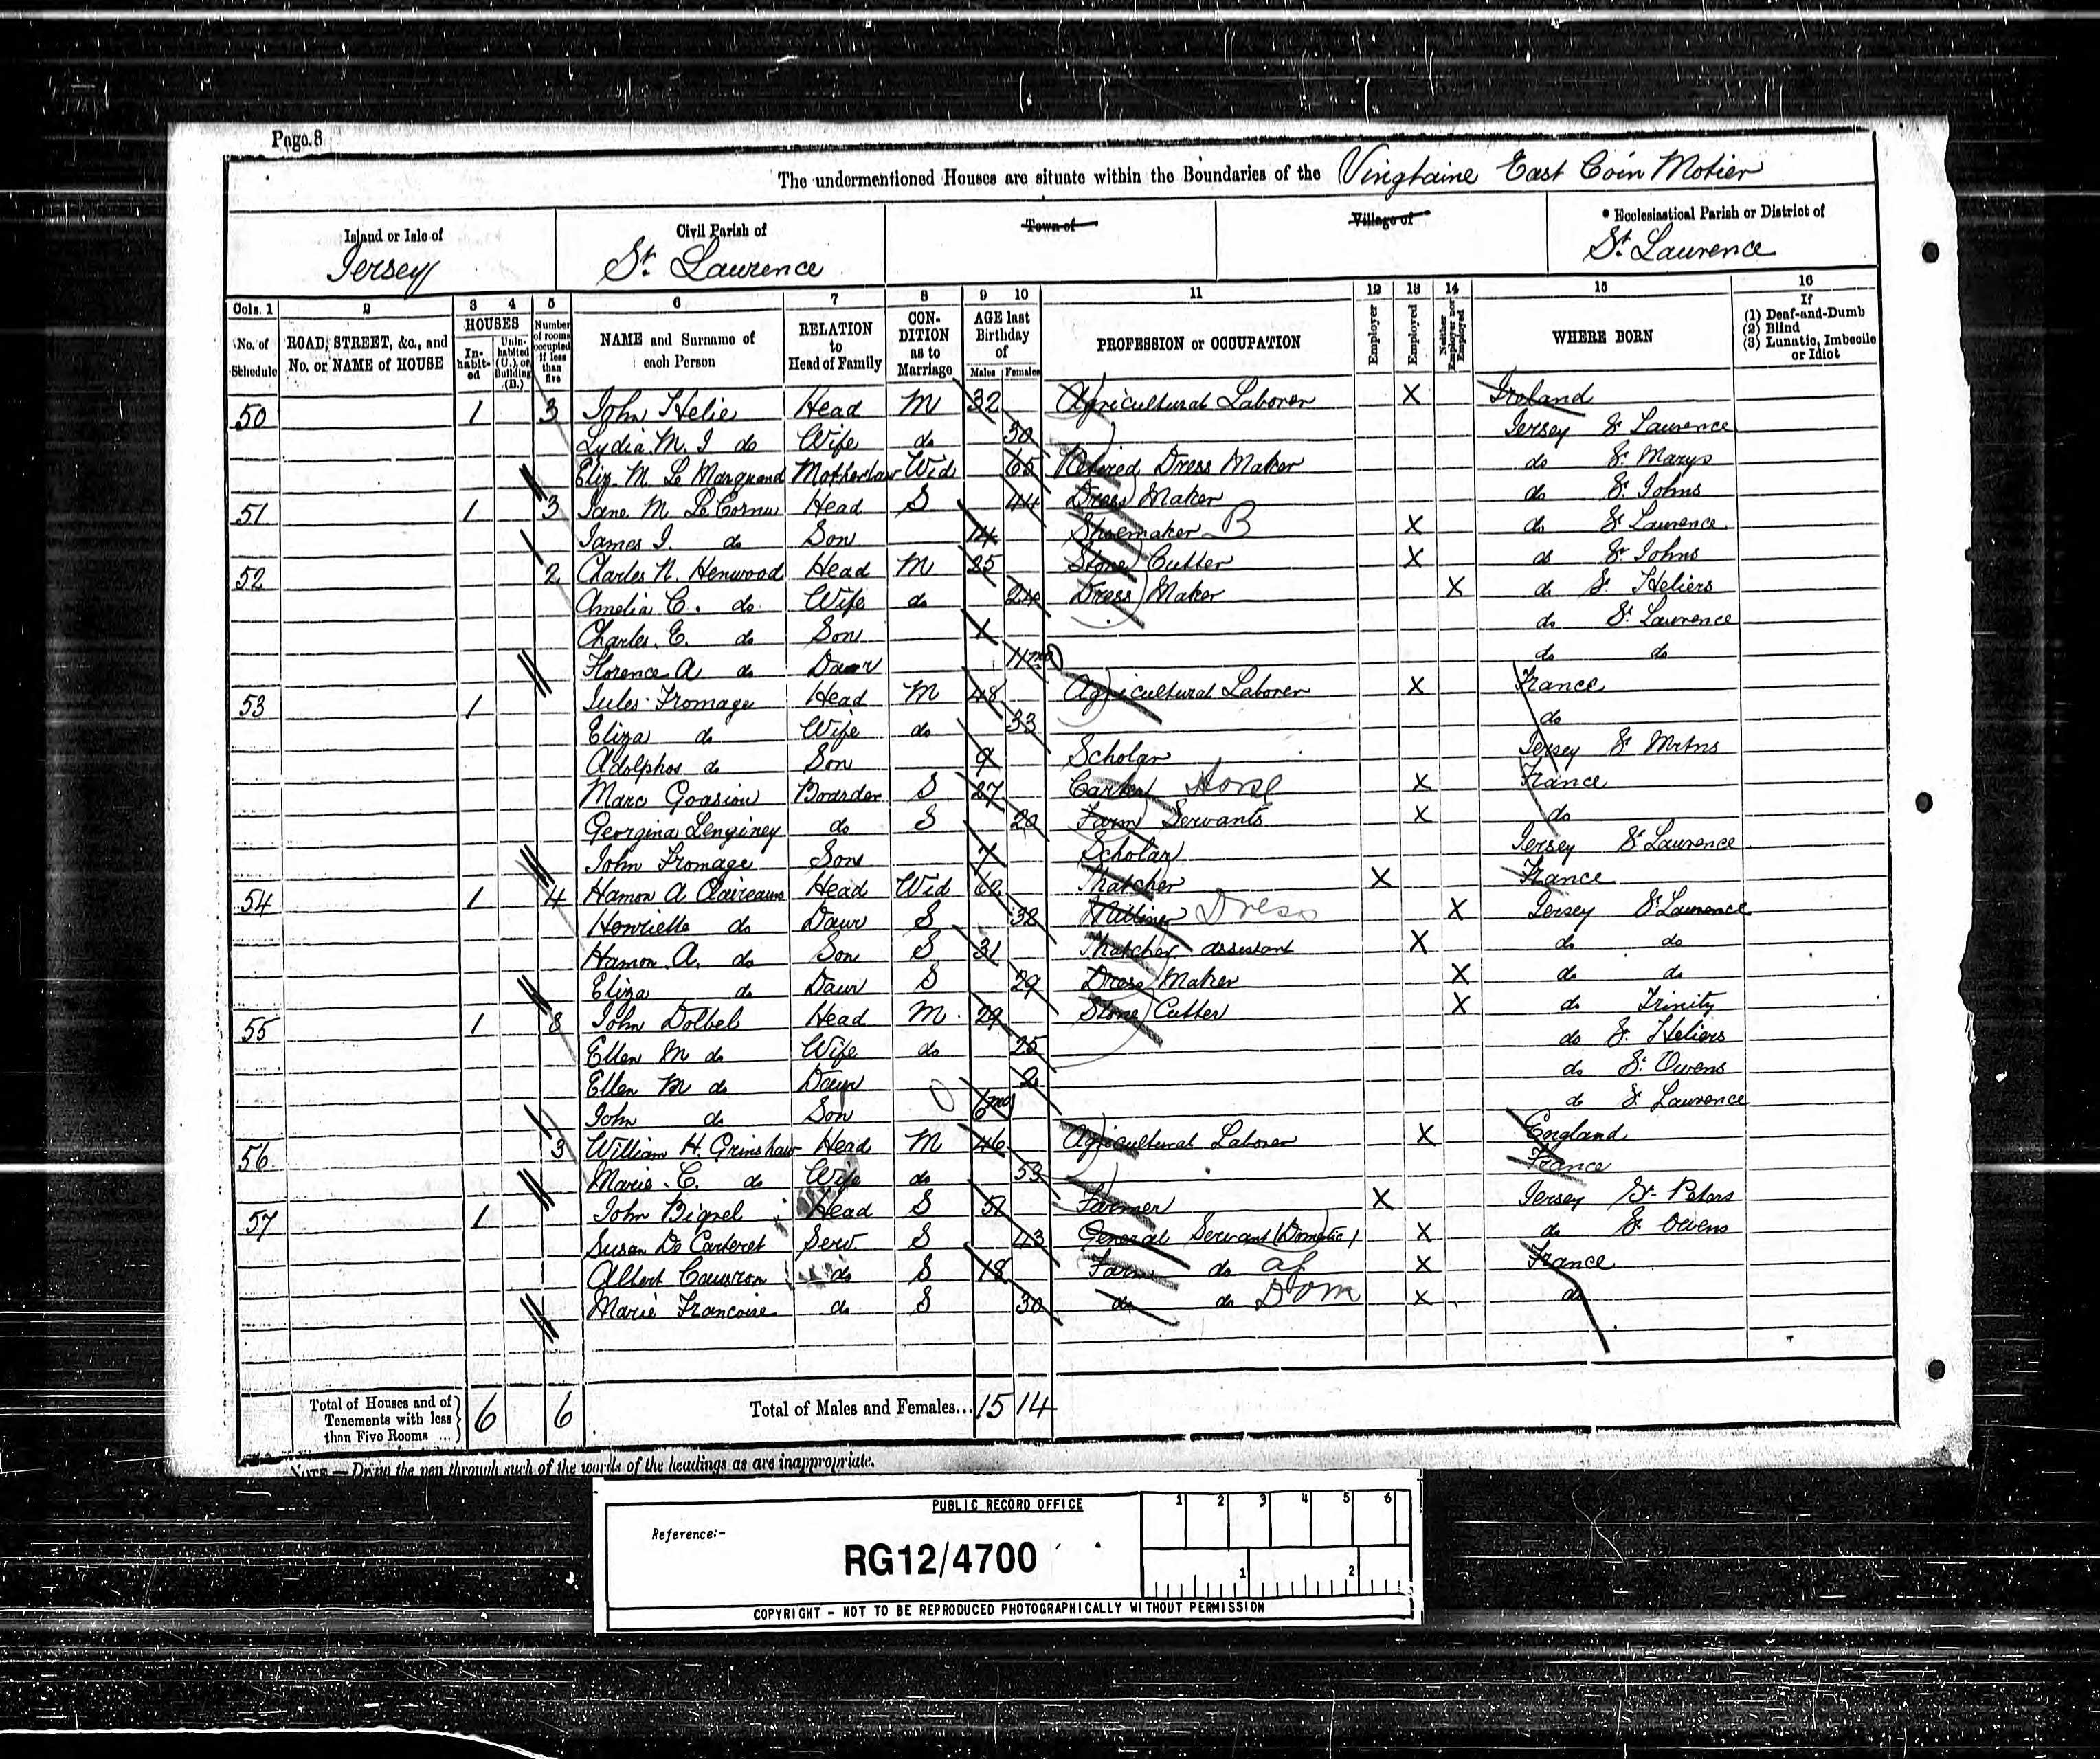 Page.8
The undermentioned Houses are situate within the Boundaries of the Vingtaine East Coin Motier
Island or Isle of Jersey
Civil Parish of St. Laurence
Town of
Village of
* Ecclesiastical Parish or District of St. Laurence
Cols. 1 2 3 4 5 6 7 8 9 10 11 12 13 14 15 16
No. of Schedule
ROAD, STREET, &c., and No. or NAME of HOUSE
HOUSES
In-habit-ed
Unin-habited (U.), or Building (B.)
Number of rooms occupied if less than five
NAME and Surname of each Person
RELATION to Head of Family
CON-DITION as to Marriage
AGE last Birthday of
Males Females
PROFESSION or OCCUPATION
Employer
Employed
Neither Employer nor Employed
WHERE BORN
If
(1) Deaf-and-Dumb
(2) Blind
(3) Lunatic, Imbecile or Idiot
50 1 3 John Helie Head M 32 Agricultural Laborer X Ireland
Lydia M. J do Wife do 30 Jersey St Laurence
Eliz. M. Le Marquand Motherlaw Wid 65 Retired Dress Maker do St Marys
51 1 3 Jane M. Le Cornu Head S 44 Dress Maker do St Johns
James J. do Son 14 Shoemaker B X do St Laurence
52 2 Charles N. Henwood Head M 25 Stone Cutter X do St Johns
Amelia C. do Wife do 24 Dress Maker X do St Heliers
Charles. E. do Son 1 do St Laurence
Florence A do Daur do do
53 1 Jules Fromage Head M 48 Agricultural Laborer X France
Eliza do Wife do 33 do
Adolphos do Son 9 Scholar Jersey St Mrtns
Marc Goasion Boarder S 27 Carter Horse X France
Georgina Lenginey do S 20 Farm Servants X do
John Fromage Son 7 Scholar Jersey St Laurence
54 1 4 Hamon A Claireaux Head Wid 62 Thatcher X France
Henriette do Daur S 38 Milliner Dress X Jersey St Laurence
Hamon. A. do Son S 31 Thatcher assistant X do do
Eliza do Daur S 29 Dress Maker X do do
55 1 3 John Dolbel Head M. 29 Stone Cutter X do Trinity
Ellen M do Wife do 25 do St Heliers
Ellen M do Daur 2 do St Owens
John do Son 6 mo do St Laurence
56 3 William H. Grinshaw Head M 46 Agricultural Laborer X England
Marie. C. do Wife do 53 France
57 1 John Bignel Head S 51 Farmer X Jersey St. Peters
Susan De Carteret Serv. S 43 General Servant (Domestic) X do St Owens
Albert Cauvron do S 18 Farm do X France
Marie Francoise do S 30 do do Dom X do
Total of Houses and of Tenements with less than Five Rooms ... 6 6
Total of Males and Females... 15 14
NOTE.—Draw the pen through such of the words of the headings as are inappropriate.
PUBLIC RECORD OFFICE
1 2 3 4 5 6
Reference:-
RG12/4700
1 2
COPYRIGHT - NOT TO BE REPRODUCED PHOTOGRAPHICALLY WITHOUT PERMISSION